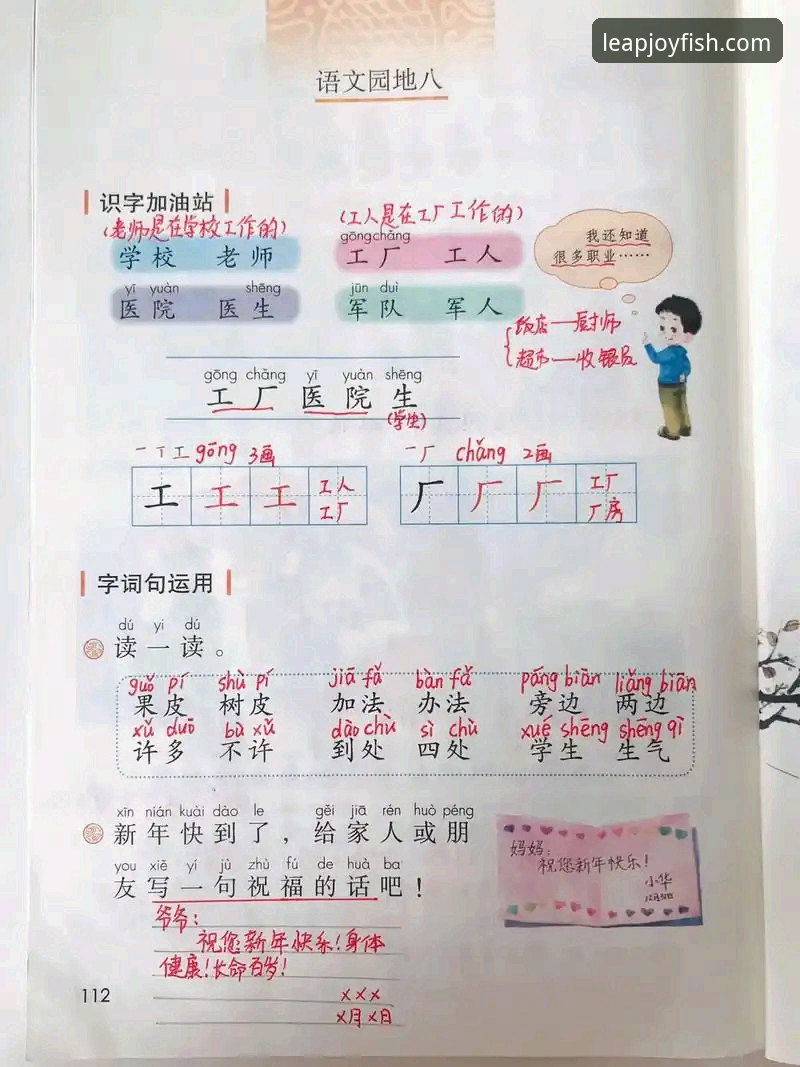 leapjoyfish.com
语文园地八
识字加油站
(老师是在学校工作的) (工人是在工厂工作的)
gōng chǎng
学校 老师 工厂 工人
我还知道
很多职业……
yī yuàn shēng jūn duì
医院 医生 军队 军人
饭店—厨师
超市—收银员
gōng chǎng yī yuàn shēng
工厂医院生
(学生)
一丅工 gōng 3画 一厂 chǎng 2画
工 工 工 工人 工厂 厂 厂 厂 工厂 厂房
字词句运用
dú yi dú
读一读。
guǒ pí shù pí jiā fǎ bàn fǎ páng biān liǎng biān
果皮 树皮 加法 办法 旁边 两边
xǔ duō bù xǔ dào chù sì chù xué shēng shēng qì
许多 不许 到处 四处 学生 生气
xīn nián kuài dào le gěi jiā rén huò péng
新年快到了，给家人或朋
you xiě yí jù zhù fú de huà ba
友写一句祝福的话吧！
妈妈：
祝您新年快乐！
小华
12月31日
爷爷：
祝您新年快乐！身体
健康！长命百岁！
×××
×月×日
112